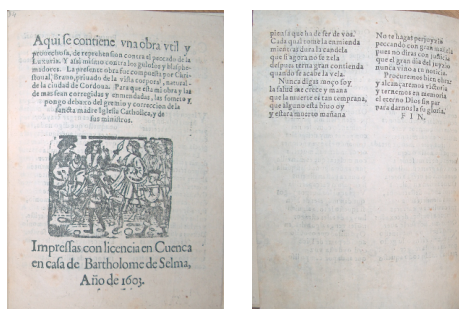 Aqui se contiene vna obra vtil y
prouechosa, de reprehension contra el peccado de la
Luxuria. Y assi mismo contra los golosos y blasphe-
madores. La presente obra fue compuesta por Chri-
stoual, Brauo, priuado de la vista corporal, natural
de la ciudad de Cordoua. Para que esta mi obra y las
de mas sean corregidas y enmendadas, las someto y
pongo debaxo del gremio y correccion de la
sancta madre Iglesia Catholica, y de
sus ministros.
Impressas con licencia en Cuenca
en casa de Bartholome de Selma,
Año de 1603.
piense que ha de ser de vos.
Cada qual tome la enmienda
mientras dura la candela
que si agora no se zela
despues terna gran contienda
quando se acabe la vela.
Nunca digas moço soy
la salud me crece y mana
que la muerte es tan temprana,
que alguno esta biuo oy
y estara muerto mañana
No te hagas
peccando con gran
pues no diras con justicia
que el gran dia del juyzio
nunca vino a tu noticia.
Procuremos bien obrar
y alcançaremos victoria
y ternemos en memoria
el eterno Dios sin par
para darnos la su gloria.
FIN.